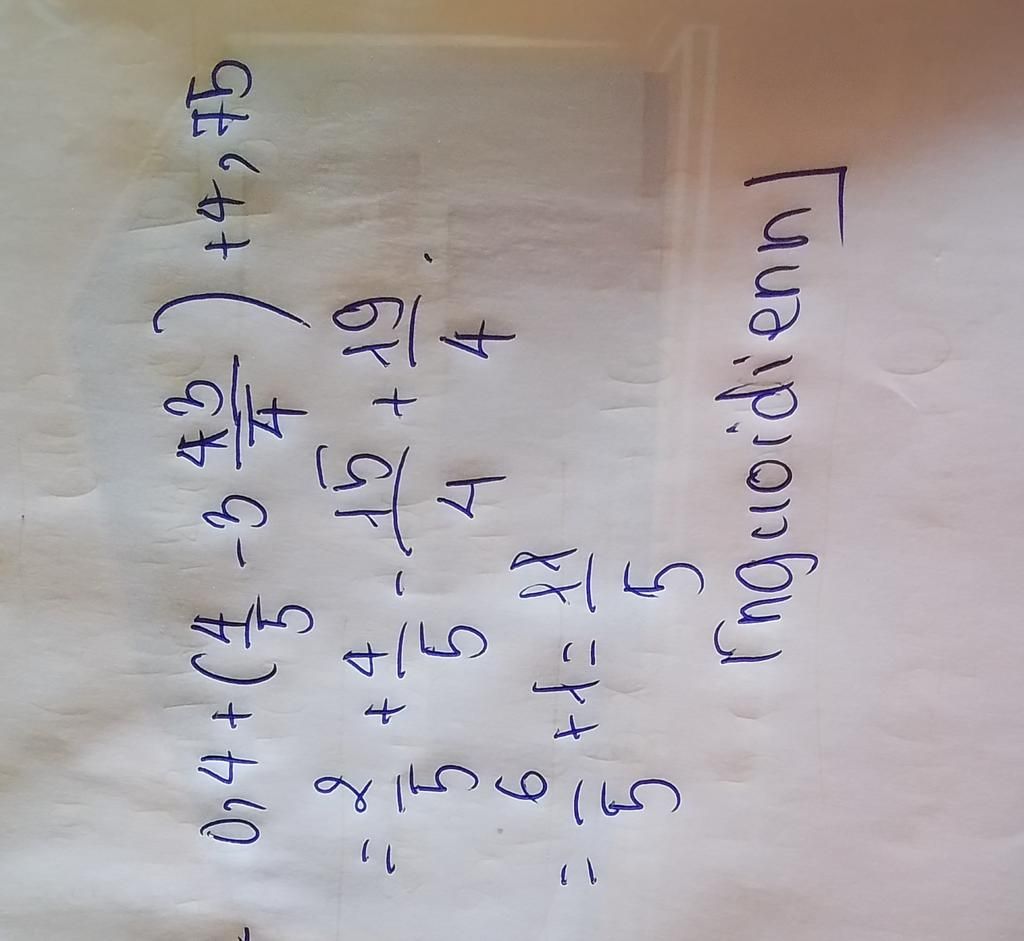 0,4 + (4/5 - 3 3/4) + 4,75
= 2/5 + 4/5 - 15/4 + 19/4.
= 6/5 + 1 = 11/5
[ngcuoidienn]